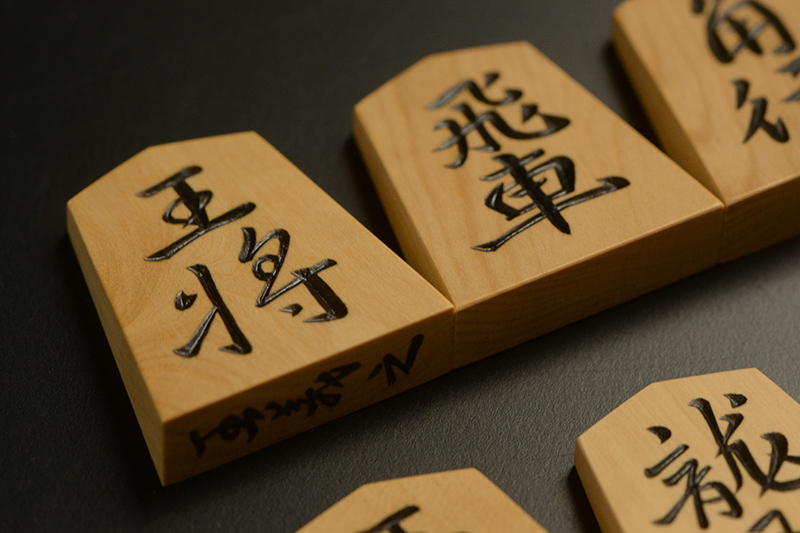 王将
飛車
角行
龍